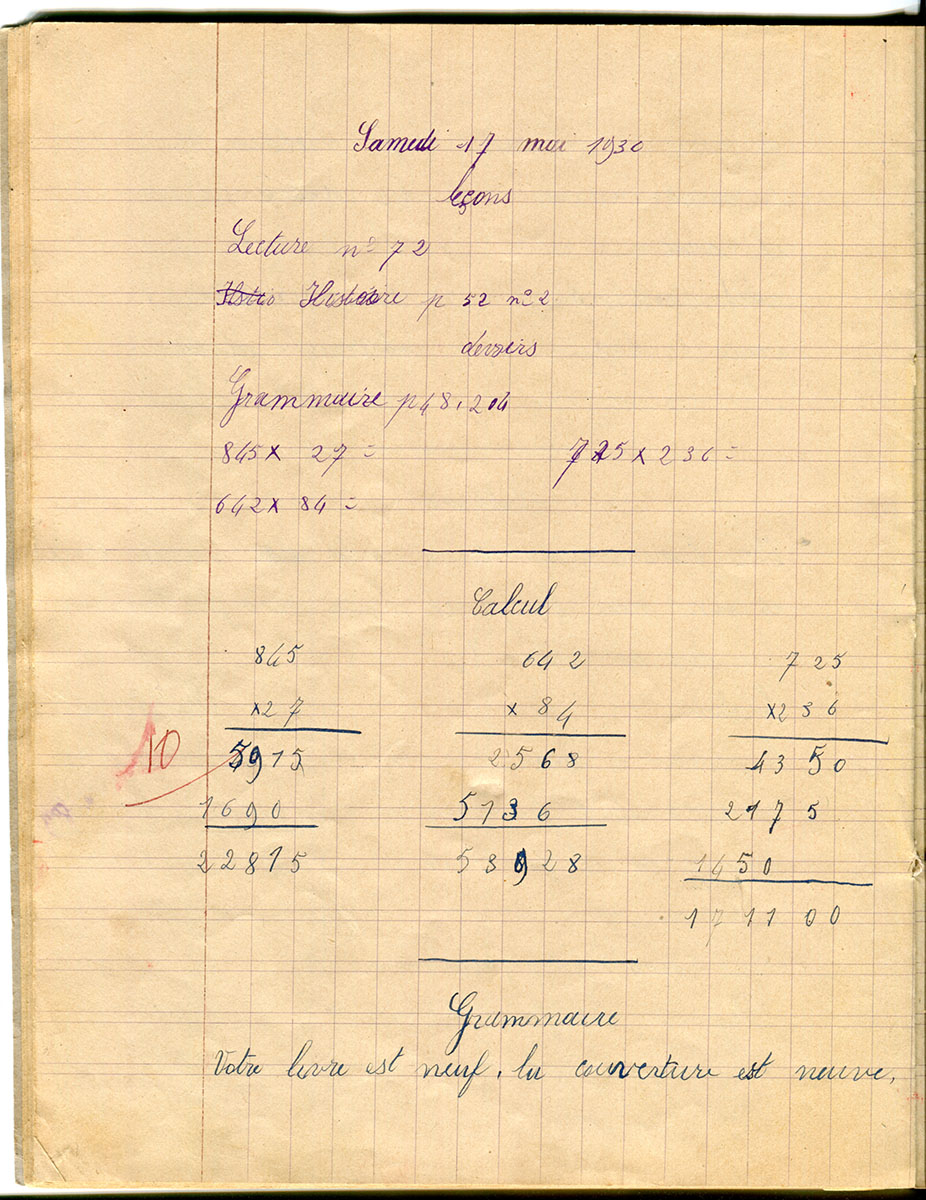 Samedi 17 mai 1930
leçons
Lecture n° 72
Histoire p 52 n° 2
devoirs
Grammaire p 48, 204
845 x 27 = 725 x 236 =
642 x 84 =
Calcul
845 642 725
x27 x 84 x236
5915 2568 4350
10
1690 5136 2175
22815 53928 1450
171100
Grammaire
Votre livre est neuf, la couverture est neuve,